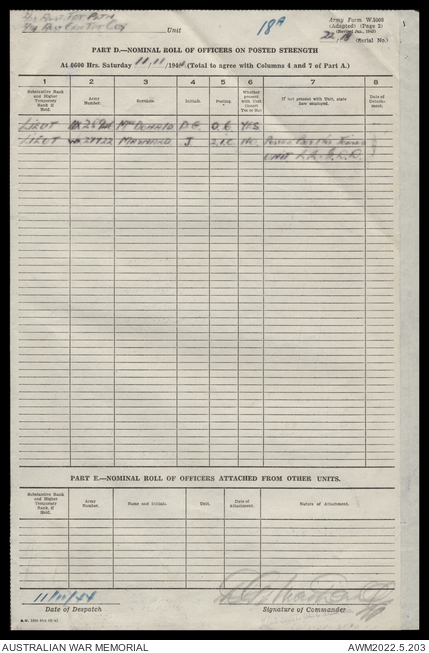 Unit
18A
Army Form W.3008
(Adapted) (Page 2)
(Serial No.)
PART D.—NOMINAL ROLL OF OFFICERS ON POSTED STRENGTH
At 0600 Hrs. Saturday 11/11/1944 (Total to agree with Columns 4 and 7 of Part A.)
1 2 3 4 5 6 7 8
Substantive Rank and Higher Temporary Rank, if Held.
Army Number.
Surname.
Initials.
Posting.
Whether present with Unit (Insert Yes or No)
If not present with Unit, state how employed.
Date of Detachment.
LIEUT McDONALD D.G. O.C. YES
LIEUT MAYNARD J. 2.I.C. NO
UNIT
PART E.—NOMINAL ROLL OF OFFICERS ATTACHED FROM OTHER UNITS.
Substantive Rank and Higher Temporary Rank, if Held.
Army Number.
Name and Initials.
Unit.
Date of Attachment.
Nature of Attachment.
11/11/44
Date of Despatch
Signature of Commander
AUSTRALIAN WAR MEMORIAL
AWM2022.5.203